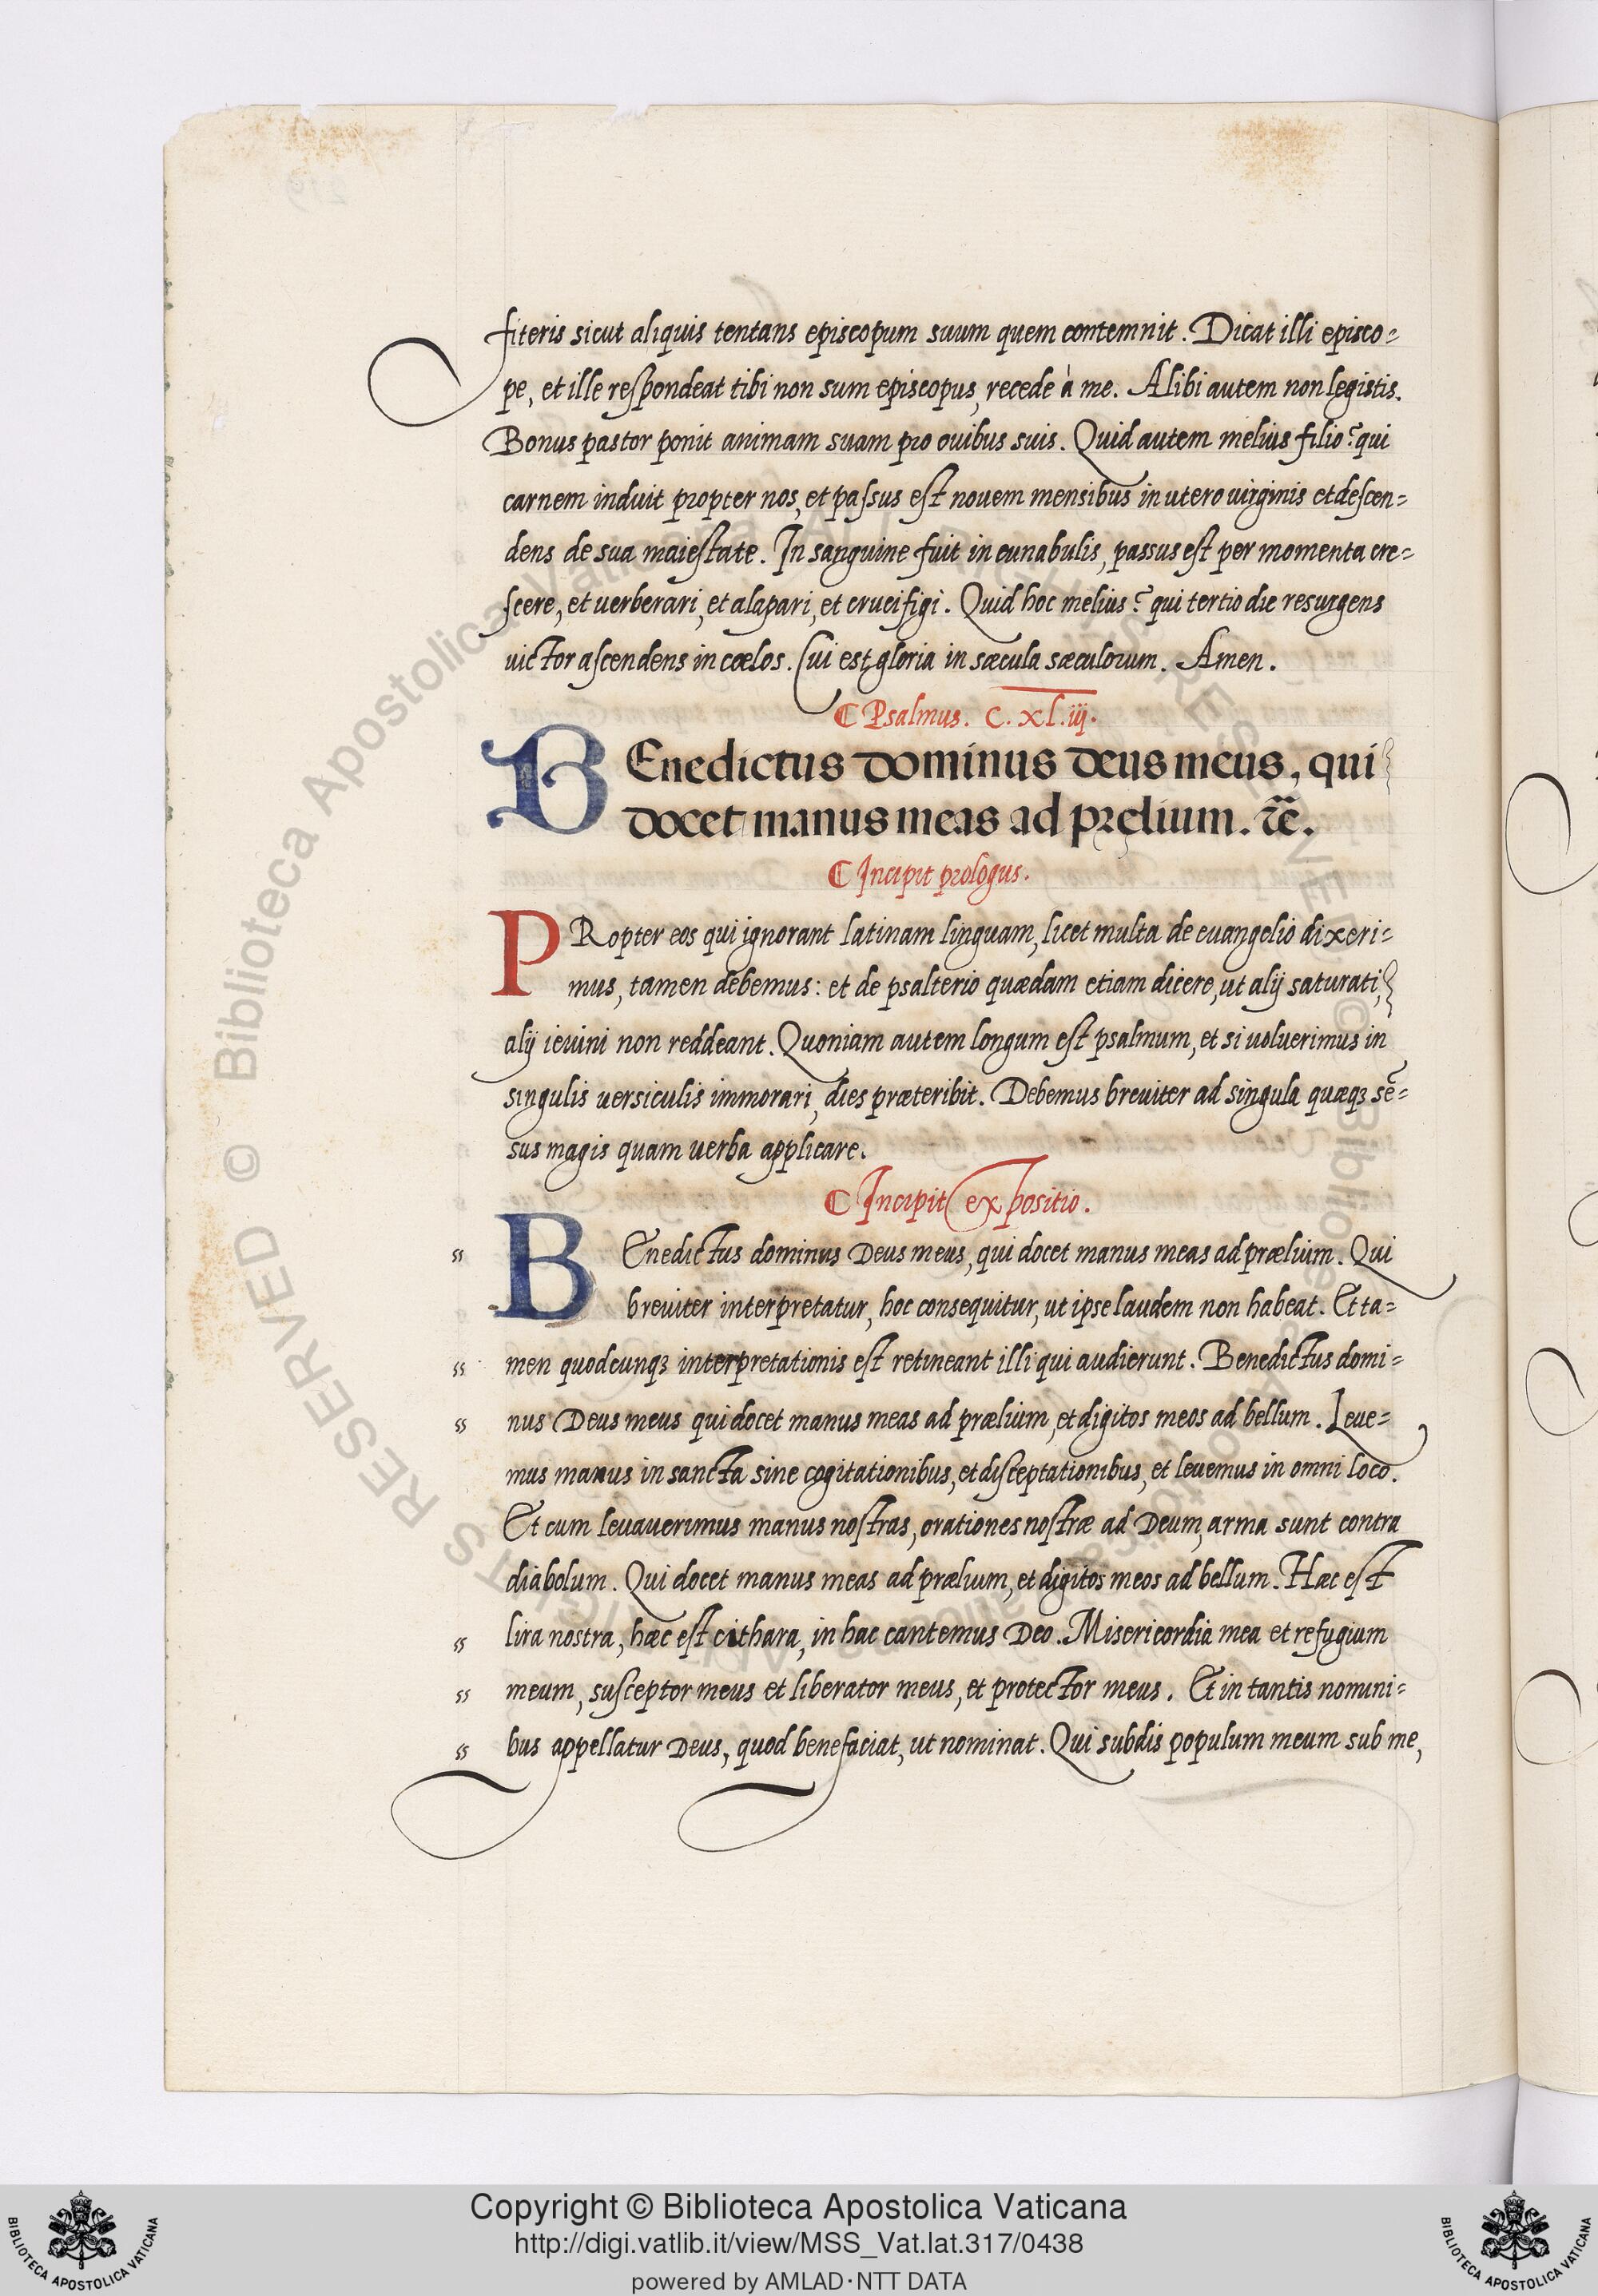 fiteris sicut aliquis tentans episcopum suum quem contemnit. Dicat illi episco=
pe, et ille respondeat tibi non sum episcopus, recede à me. Alibi autem non legistis.
Bonus pastor ponit animam suam pro ouibus suis. Quid autem melius filio? qui
carnem induit propter nos, et passus est nouem mensibus in utero uirginis et descen=
dens de sua maiestate. In sanguine fuit in cunabulis, passus est per momenta cre=
scere, et uerberari, et alapari, et crucifigi. Quid hoc melius? qui tertio die resurgens
uictor ascendens in cœlos. Cui est gloria in sæcula sæculorum. Amen.
¶ Psalmus. C. xl. iij.
BEnedictus dominus deus meus, qui
docet manus meas ad prelium. &c.
¶ Incipit prologus.
PRopter eos qui ignorant latinam linguam, licet multa de euangelio dixeri=
mus, tamen debemus: et de psalterio quædam etiam dicere, ut alij saturati,
alij ieiuni non reddeant. Quoniam autem longum est psalmum, et si uoluerimus in
singulis uersiculis immorari, dies præteribit. Debemus breuiter ad singula quæqꝫ sē=
sus magis quam uerba applicare.
¶ Incipit expositio.
" BEnedictus dominus Deus meus, qui docet manus meas ad prælium. Qui
breuiter interpretatur, hoc consequitur, ut ipse laudem non habeat. Et ta=
" men quodcunqꝫ interpretationis est retineant illi qui audierunt. Benedictus domi=
" nus Deus meus qui docet manus meas ad prælium, et digitos meos ad bellum. Leue=
mus manus in sancta sine cogitationibus, et disceptationibus, et leuemus in omni loco.
Et cum leuauerimus manus nostras, orationes nostræ ad Deum, arma sunt contra
diabolum. Qui docet manus meas ad prælium, et digitos meos ad bellum. Hæc est
" lira nostra, hæc est cithara, in hac cantemus Deo. Misericordia mea et refugium
" meum, susceptor meus et liberator meus, et protector meus. Et in tantis nomini=
" bus appellatur Deus, quod benefaciat, ut nominat. Qui subdis populum meum sub me,
© Biblioteca Apostolica Vaticana ALL RIGHTS RESERVED © Biblioteca Apostolica Vaticana ALL RIGHTS RESERVED
Copyright © Biblioteca Apostolica Vaticana
http://digi.vatlib.it/view/MSS_Vat.lat.317/0438
powered by AMLAD·NTT DATA
BIBLIOTECA APOSTOLICA VATICANA
BIBLIOTECA APOSTOLICA VATICANA